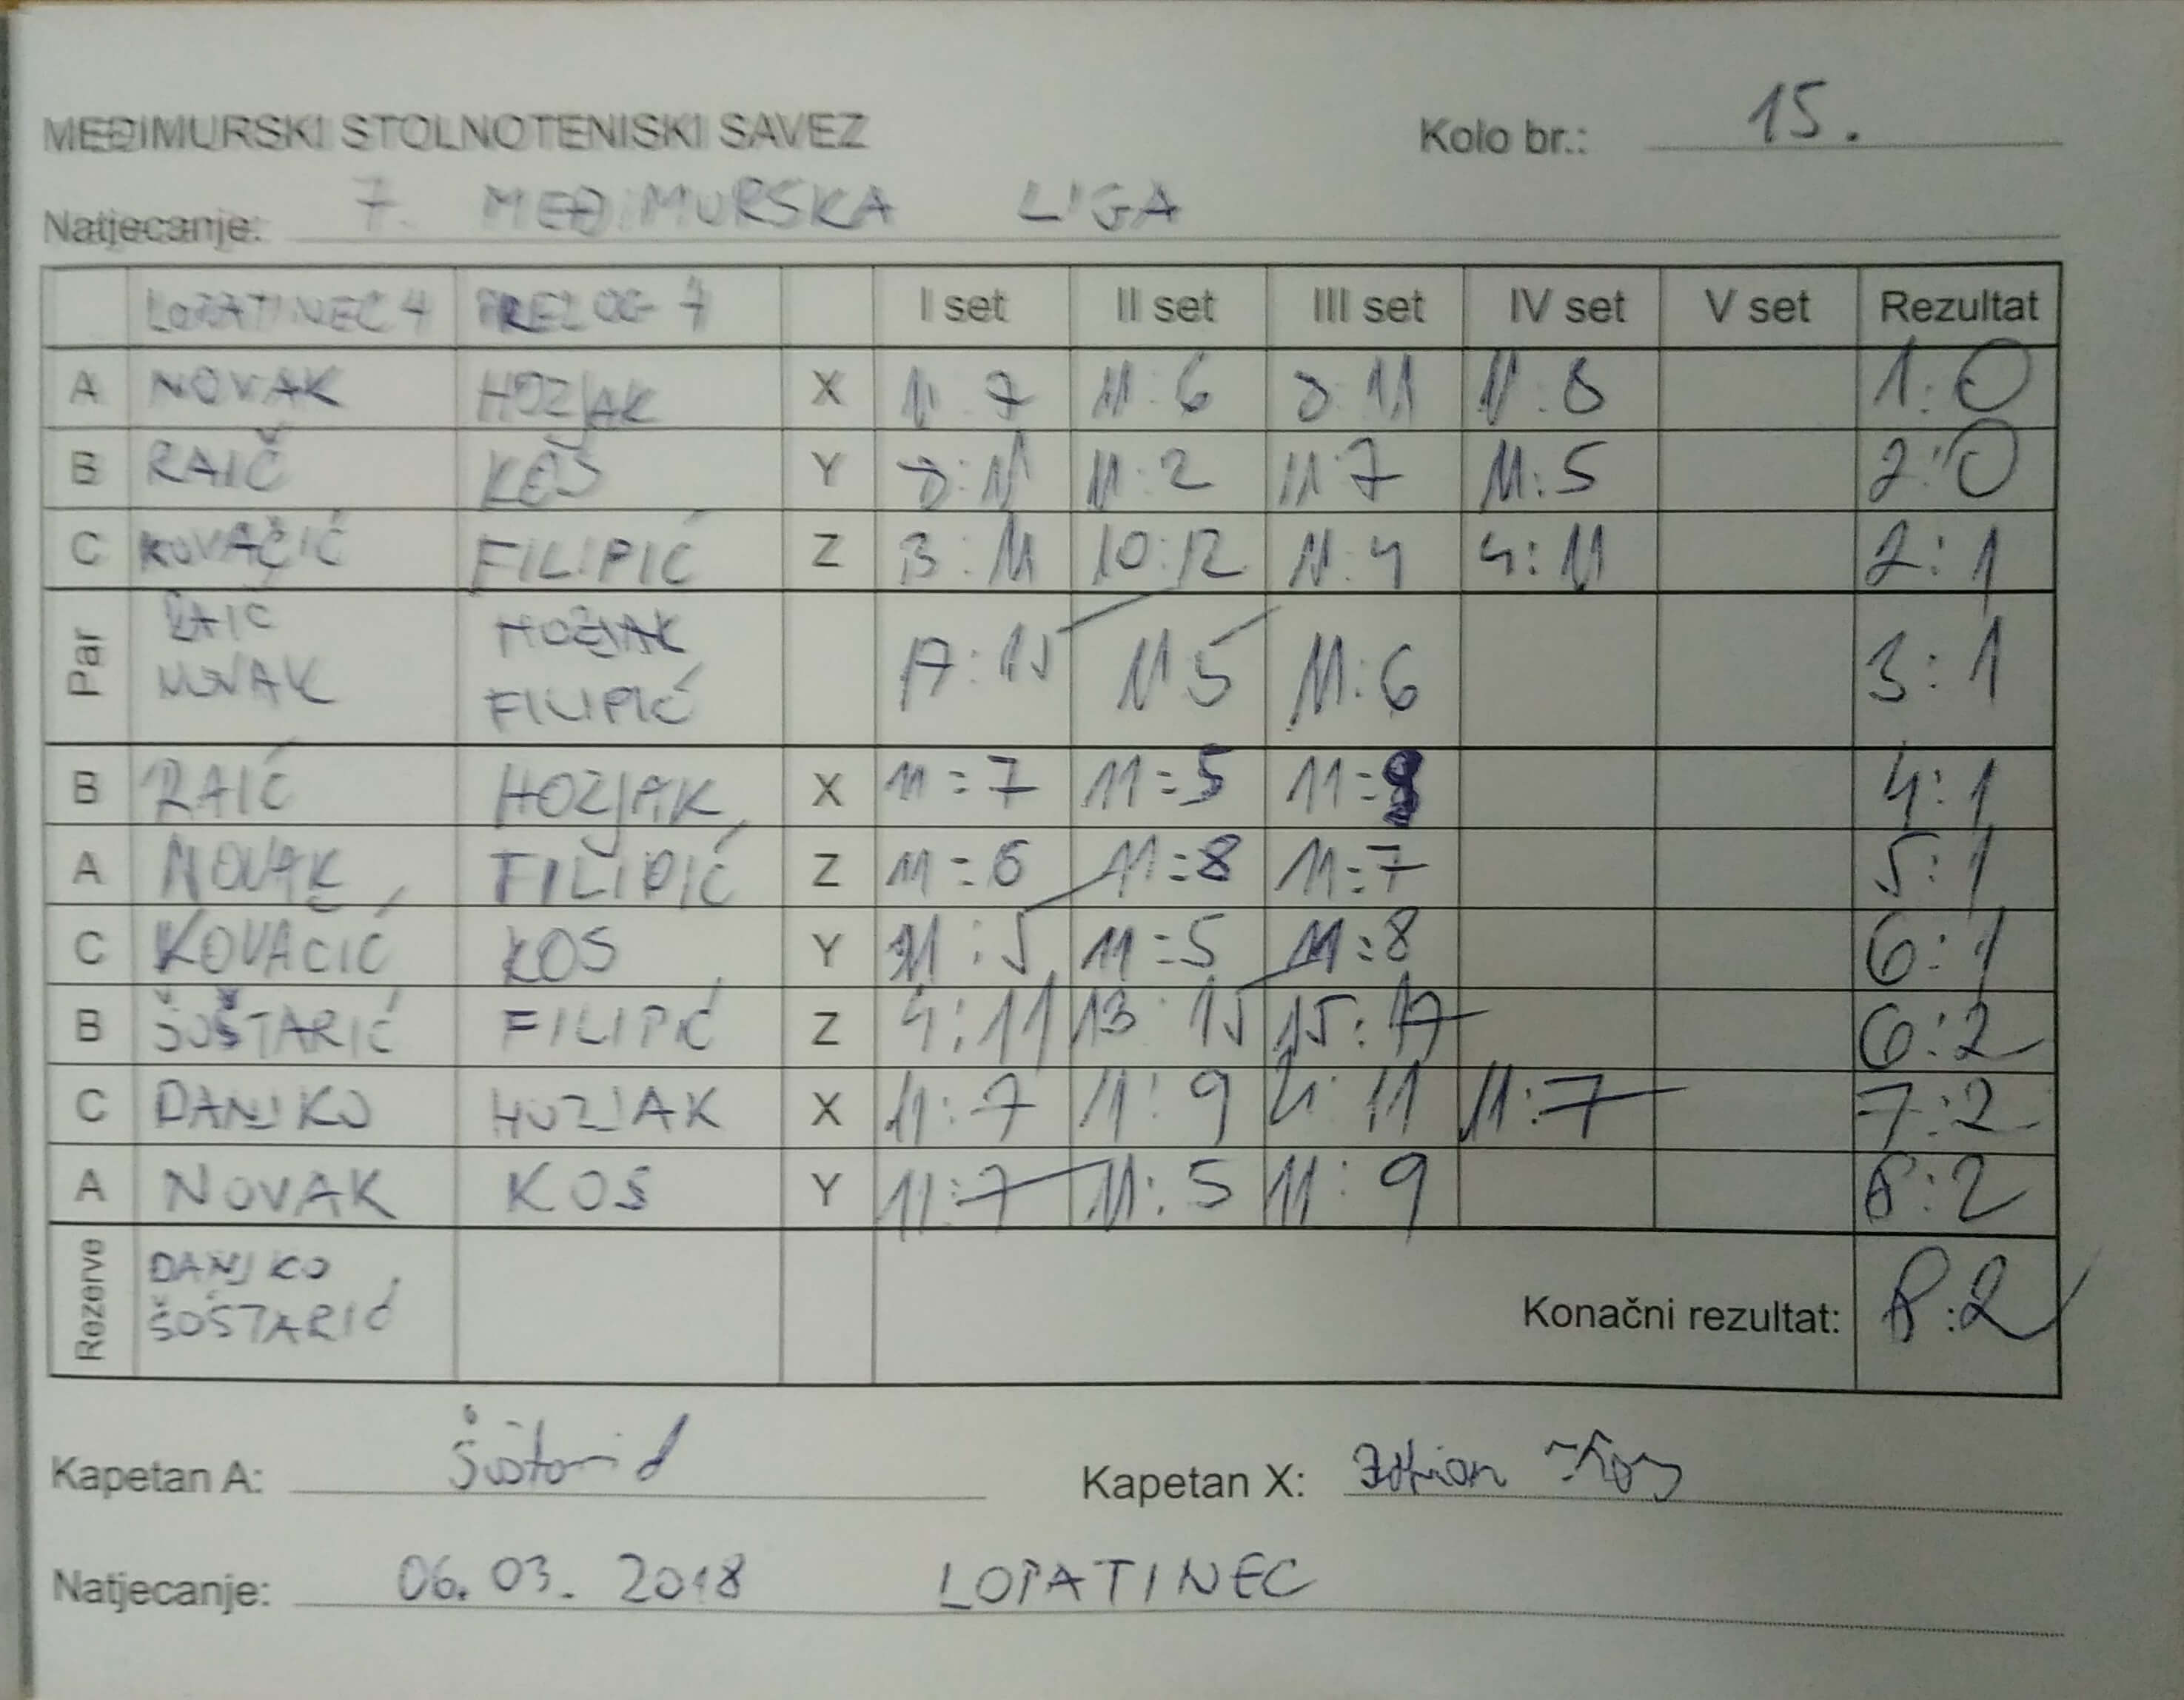 MEĐIMURSKI STOLNOTENISKI SAVEZ Kolo br.: 15.
Natjecanje: 7. MEĐIMURSKA LIGA
LOPATINEC 4 PRELOG 7 I set II set III set IV set V set Rezultat
A NOVAK HOZJAK X 11:7 11:6 8:11 11:8 1:0
B RAIČ KOS Y 8:11 11:2 11:7 11:5 2:0
C KOVAČIĆ FILIPIĆ Z 3:11 10:12 11:4 4:11 2:1
Par RAIČ NOVAK HOZJAK FILIPIĆ 17:15 11 5 11:6 3:1
B RAIČ HOZJAK X 11=7 11=5 11=9 4:1
A NOVAK FILIPIĆ Z 11=6 11=8 11=7 5:1
C KOVAČIĆ KOS Y 11:5 11=5 11=8 6:1
B ŠOŠTARIĆ FILIPIĆ Z 4:11 13:15 15:17 6:2
C DANJKO HOZJAK X 11:7 11:9 4:11 11:7 7:2
A NOVAK KOS Y 11:7 11:5 11:9 8:2
Rezerve DANJKO
ŠOŠTARIĆ
Konačni rezultat: 8:2
Kapetan A: Šoštarić Kapetan X: Kos
Natjecanje: 06.03.2018 LOPATINEC